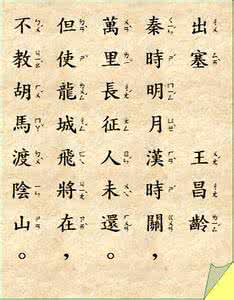 出塞 王昌齡
秦時明月漢時關,
萬里長征人未還。
但使龍城飛將在,
不教胡馬渡陰山。